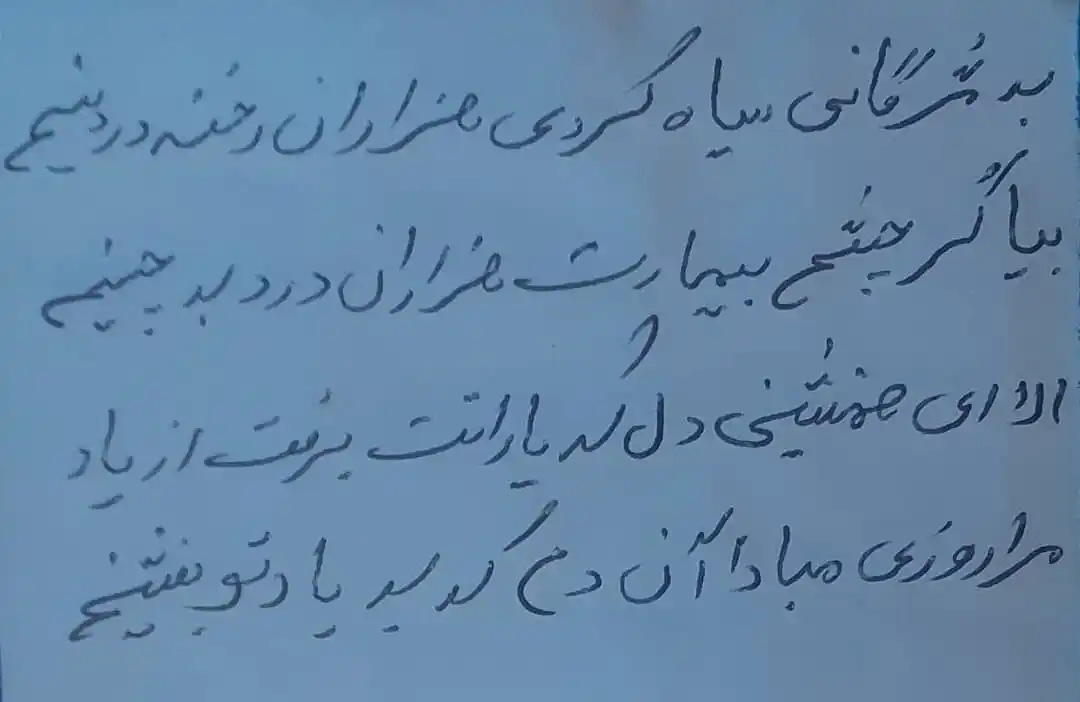 به مژگانی سیاه کردی هزاران رخنه در دینم
بیا گر چشم بیمارت هزاران درد بر چینم
الا ای همنشینی دل که یارانت برفت از یاد
مرا روزی مبادا آن دم که بی یاد تو بنشینم